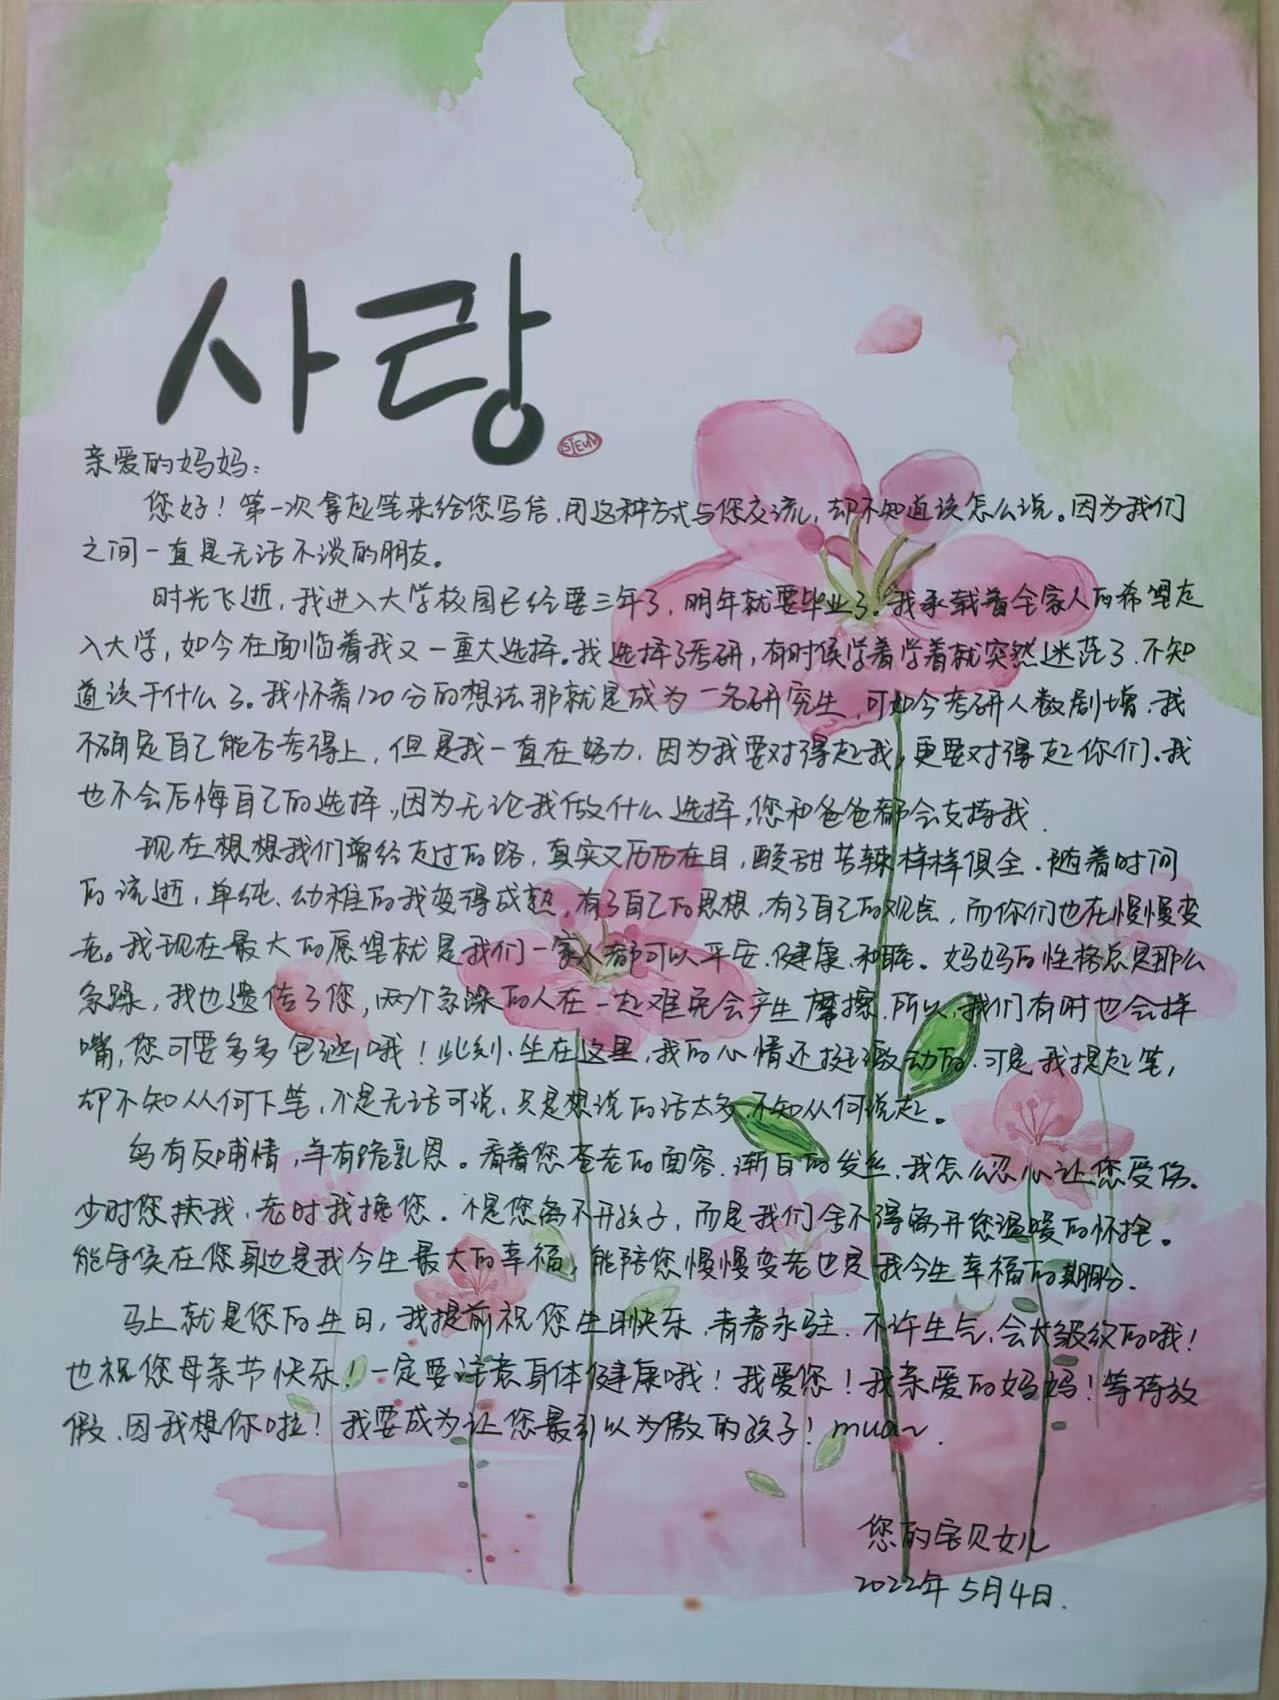 사랑
SIEUN
亲爱的妈妈：
您好！第一次拿起笔来给您写信，用这种方式与您交流，却不知道该怎么说。因为我们
之间一直是无话不谈的朋友。
时光飞逝，我进入大学校园已经要三年了，明年就要毕业了。我承载着全家人的希望走
入大学，如今在面临着我又一重大选择。我选择了考研，有时候学着学着就突然迷茫了，不知
道该干什么了。我怀着120分的想法那就是成为一名研究生，可如今考研人数剧增，我
不确定自己能否考得上，但是我一直在努力，因为我要对得起我，更要对得起你们。我
也不会后悔自己的选择，因为无论我做什么选择，您和爸爸都会支持我．
现在想想我们曾经走过的路，真实又历历在目，酸甜苦辣样样俱全．随着时间
的流逝，单纯、幼稚的我变得成熟，有了自己的思想，有了自己的观点，而你们也在慢慢变
老。我现在最大的愿望就是我们一家人都可以平安、健康、和睦。妈妈的性格总是那么
急躁，我也遗传了您，两个急躁的人在一起难免会产生摩擦，所以，我们有时也会拌
嘴，您可要多多包涵哦！此刻，坐在这里，我的心情还挺激动的，可是我提起笔，
却不知从何下笔，不是无话可说，只是想说的话太多，不知从何说起。
鸟有反哺情，羊有跪乳恩。看着您苍老的面容，渐白的发丝，我怎么忍心让您受伤。
少时您扶我，老时我搀您．不是您离不开孩子，而是我们舍不得离开您温暖的怀抱。
能守候在您身边是我今生最大的幸福，能陪您慢慢变老也是我今生幸福的期盼．
马上就是您的生日，我提前祝您生日快乐，青春永驻．不许生气，会长皱纹的哦！
也祝您母亲节快乐！一定要注意身体健康哦！我爱您！我亲爱的妈妈！等待放
假，因我想你啦！我要成为让您最引以为傲的孩子！mua~．
您的宝贝女儿
2022年5月4日．